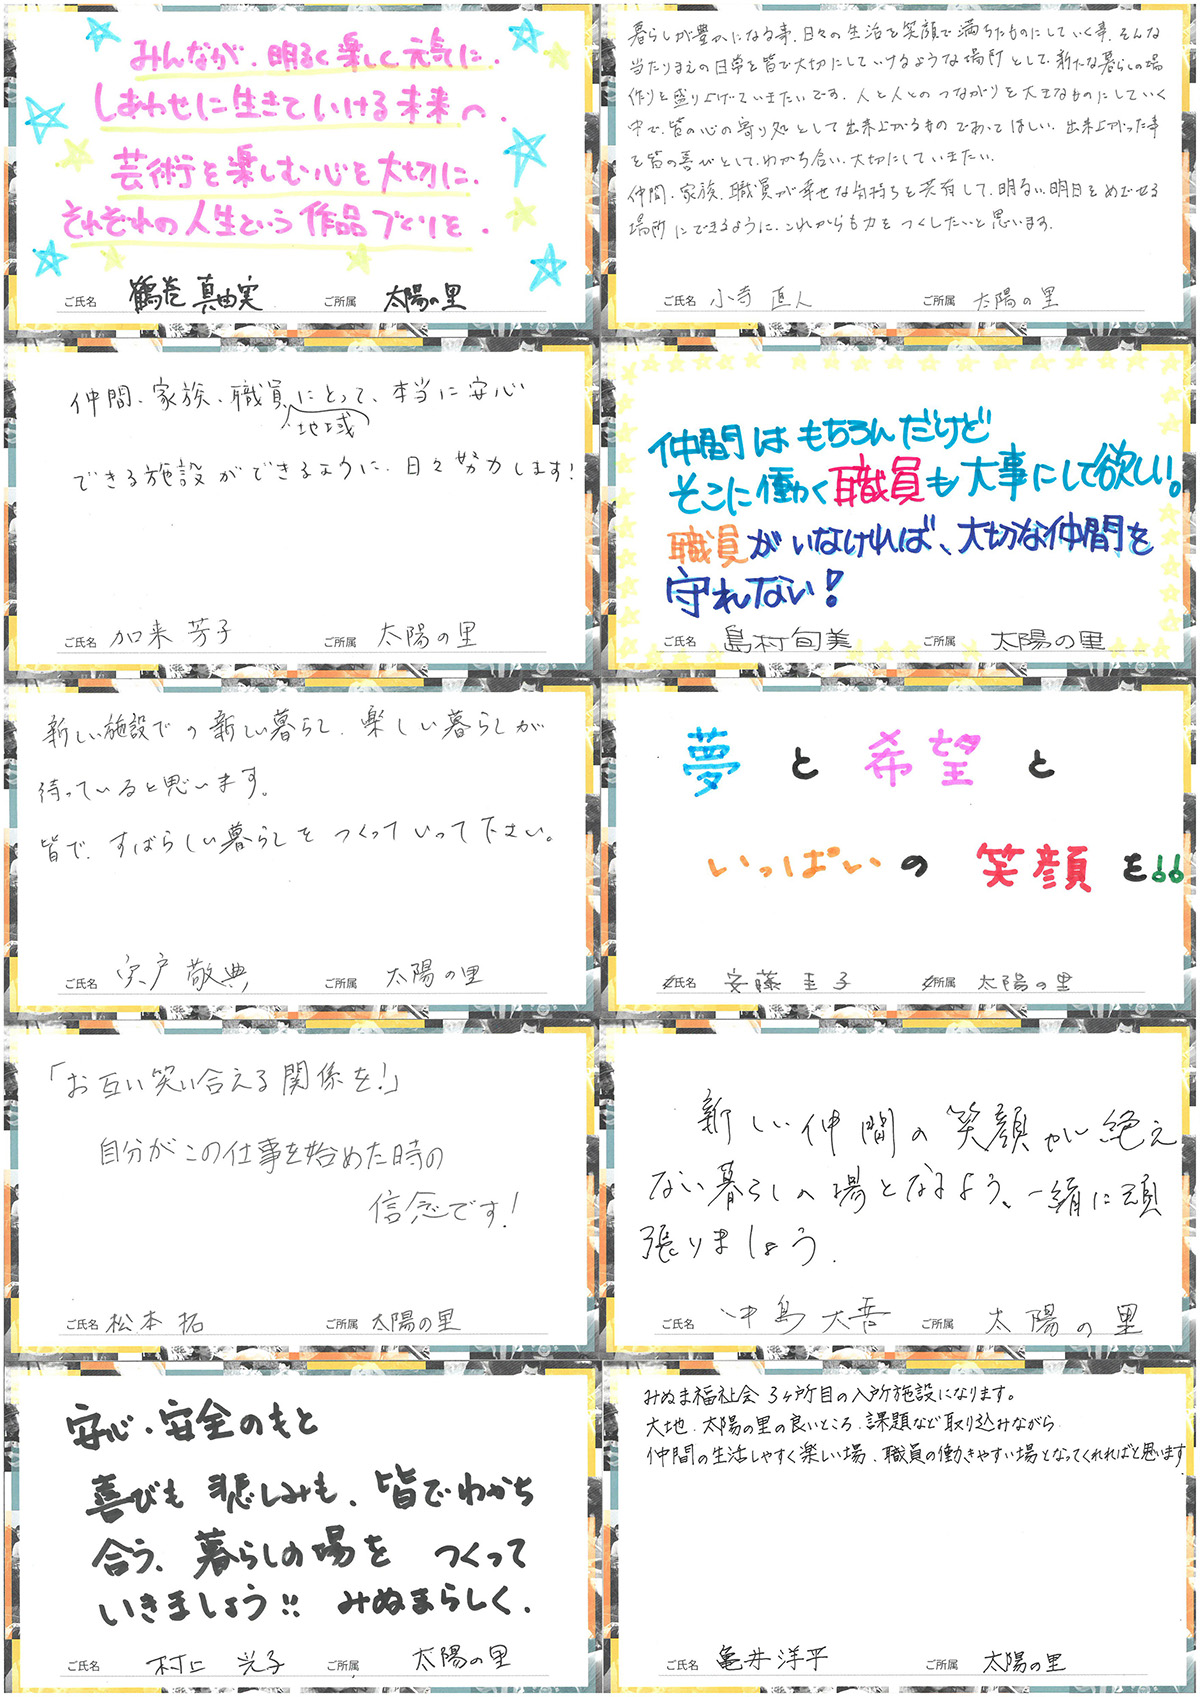 みんなが、明るく楽しく元気に、
しあわせに生きていける未来へ、
芸術を楽しむ心を大切に、
それぞれの人生という作品づくりを、
ご氏名 鶴巻 真由実 ご所属 太陽の里
暮らしが豊かになる事、日々の生活を笑顔で満ちたものにしていく事、そんな
当たりまえの日常を皆で大切にしていけるような場所として、新たな暮らしの場
作りを盛り上げていきたいです。人と人とのつながりを大きなものにしていく
中で、皆の心の寄り処として出来上がるものであってほしい、出来上がった事
を皆の喜びとして、わかち合い、大切にしていきたい。
仲間、家族、職員が幸せな気持ちを共有して、明るい明日をめざせる
場所にできるように、これからも力をつくしたいと思います。
ご氏名 小寺 直人 ご所属 太陽の里
仲間、家族、職員、にとって、本当に安心
地域
できる施設ができるように、日々努力します!
ご氏名 加来 芳子 ご所属 太陽の里
仲間はもちろんだけど
そこに働く職員も大事にして欲しい。
職員がいなければ、大切な仲間を
守れない!
ご氏名 島村旬美 ご所属 太陽の里
新しい施設での新しい暮らし、楽しい暮らしが
待っていると思います。
皆で、すばらしい暮らしをつくっていって下さい。
ご氏名 宍戸 敬典 ご所属 太陽の里
夢と希望と
いっぱいの笑顔を!!
ご氏名 安藤圭子 ご所属 太陽の里
「お互い笑い合える関係を!」
自分がこの仕事を始めた時の
信念です!
ご氏名 松本 拓 ご所属 太陽の里
新しい仲間の笑顔が絶え
ない暮らしの場となるよう、一緒に頑
張りましょう。
ご氏名 中島 大吾 ご所属 太陽の里
安心・安全のもと
喜びも悲しみも、皆でわかち
合う、暮らしの場を つくって
いきましょう!! みぬまらしく.
ご氏名 村上 光子 ご所属 太陽の里
みぬま福祉会 3ヶ所目の入所施設になります。
大地、太陽の里の良いところ、課題など取り込みながら
仲間の生活しやすく楽しい場、職員の働きやすい場となってくれればと思います。
ご氏名 亀井洋平 ご所属 太陽の里